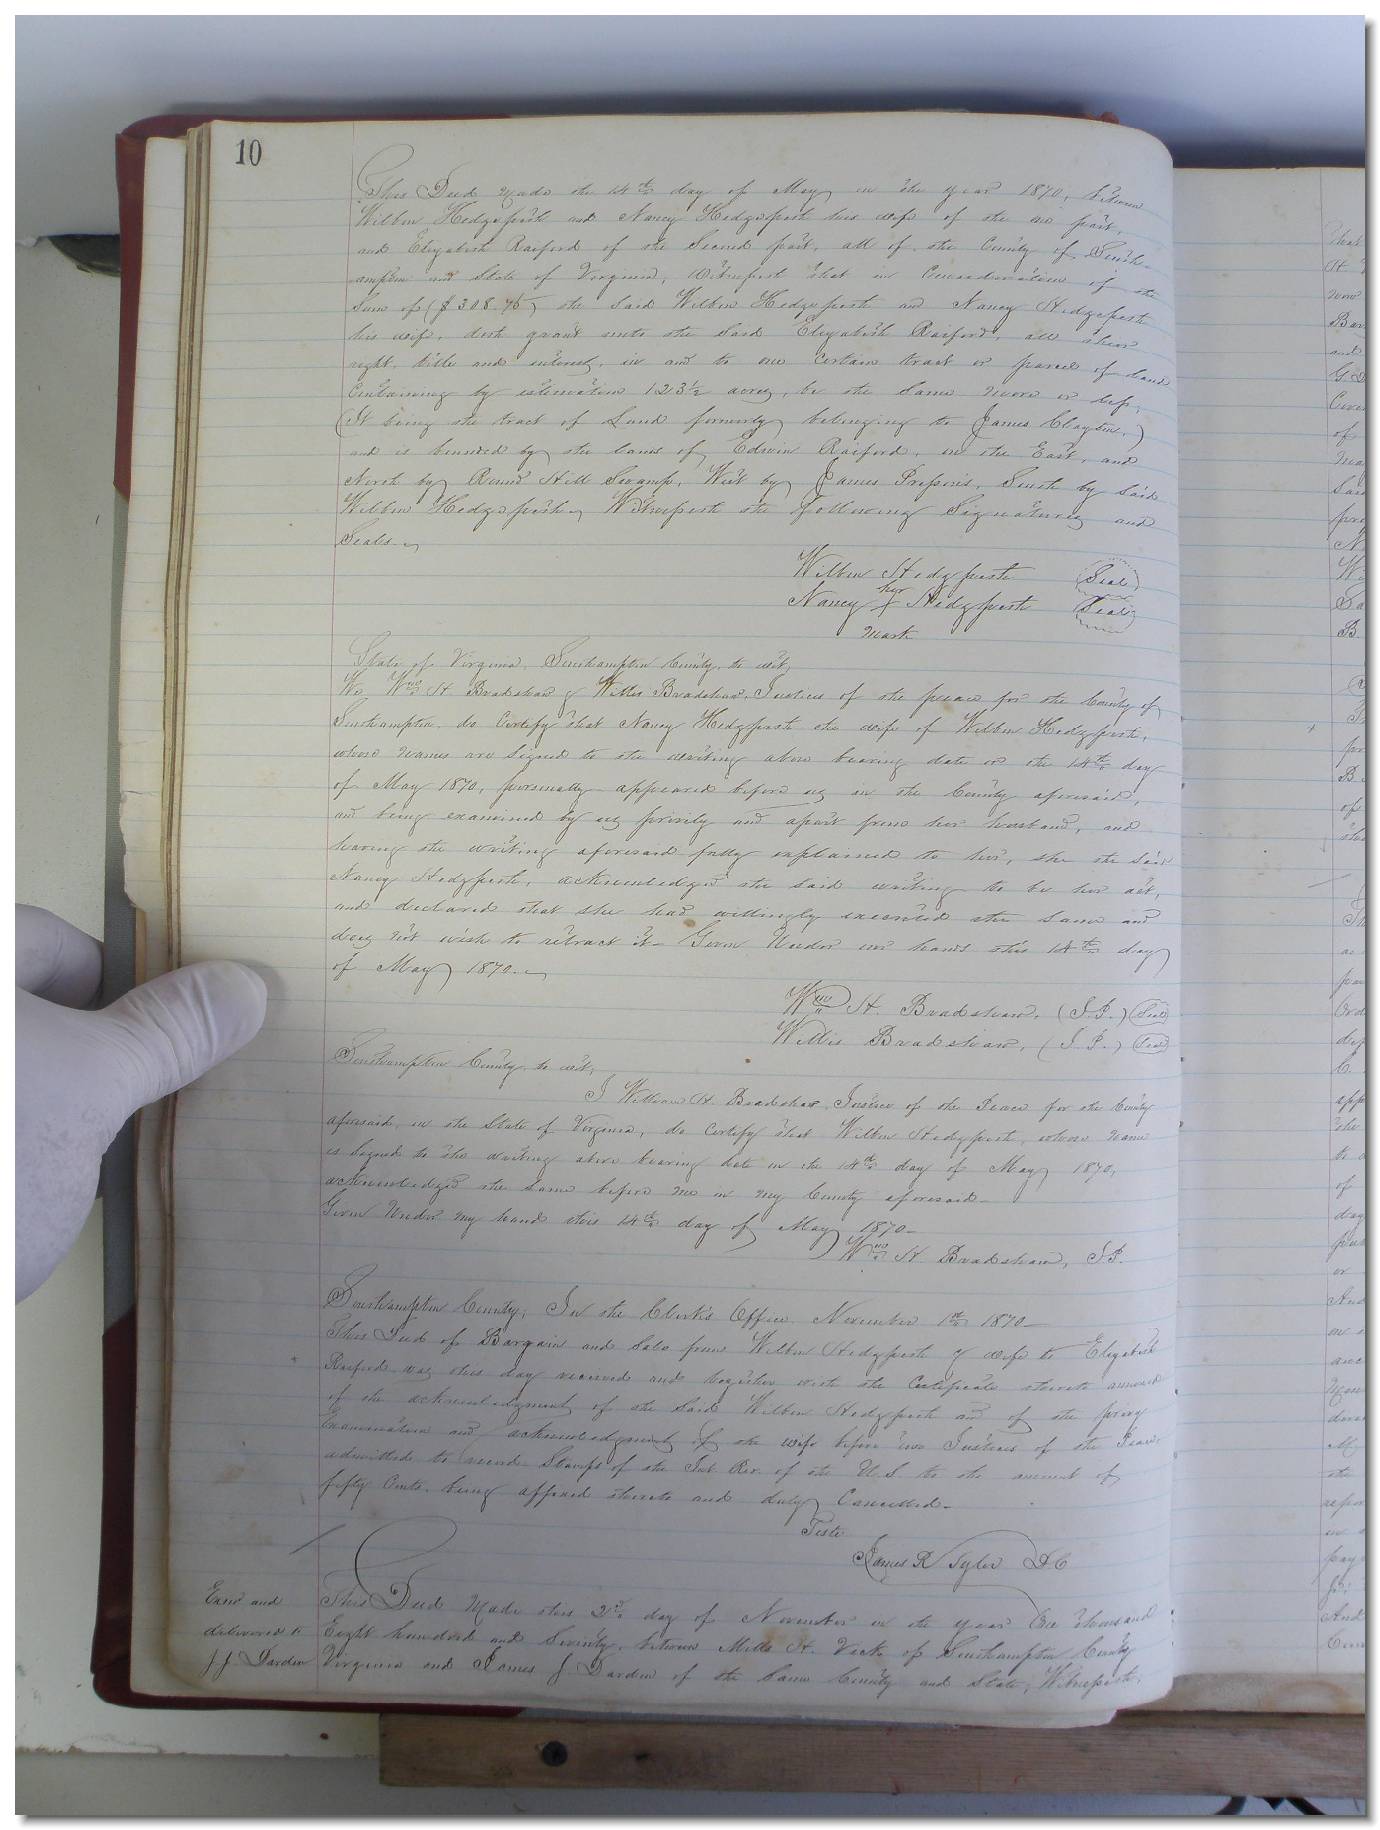 10
This Deed made the 14th day of May in the year 1870, between
Wilbin Hedgspeth and Nancy Hedgspeth his wife of the one part,
and Elizabeth Raiford of the Second part, all of the County of South-
ampton and State of Virginia, Witnesseth that in Consideration of the
Sum of ($308.75) the Said Wilbin Hedgspeth and Nancy Hedgspeth
his wife, doth grant unto the Said Elizabeth Raiford, all their
right, title and interest, in and to one Certain tract or parcel of land
Containing by estimation 123½ acres, be the Same more or less,
(It being the tract of Land formerly belonging to James Clayton.)
and is bounded by the lands of Edwin Raiford, on the East, and
North by Round Hill Swamp, West by James, South by Said
Wilbin Hedgspeth, Witnesseth the following Signatures and
Seals.
Wilbin Hedgspeth (Seal)
Nancy her X Hedgspeth (Seal)
mark
State of Virginia, Southampton County, to wit,
We, Wm H. Bradshaw & Willis Bradshaw, Justices of the peace for the County of
Southampton, do Certify that Nancy Hedgspeth the wife of Wilbin Hedgspeth,
whose names are Signed to the writing above bearing date on the 14th day
of May 1870, personally appeared before us in the County aforesaid,
and being examined by us privily and apart from her husband, and
having the writing aforesaid fully explained to her, she the said
Nancy Hedgspeth, acknowledged the said writing to be her act,
and declared that she had willingly executed the Same and
does not wish to retract it- Given Under our hands this 14th day
of May 1870.
Wm H. Bradshaw, (J.P.) (Seal)
Willis Bradshaw, (J.P.) (Seal)
Southampton County, to wit,
I William H. Bradshaw, Justice of the Peace for the County
aforesaid, in the State of Virginia, do Certify that Wilbin Hedgspeth, whose name
is Signed to the writing above bearing date on the 14th day of May 1870,
acknowledged the Same before me in my County aforesaid-
Given Under my hand this 14th day of May 1870-
Wm H. Bradshaw, J.P.
Southampton County, In the Clerk's Office, November 1st 1870-
This Deed of Bargain and Sale from Wilbin Hedgspeth & wife to Elizabeth
Raiford was this day received and together with the Certificate thereto annexed
of the acknowledgment of the Said Wilbin Hedgspeth and of the privy
Examination and acknowledgment of the wife before two Justices of the Peace
admitted to record. Stamps of the Int. Rev. of the U.S. to the amount of
fifty Cents, being affixed thereto and duly Cancelled-
Teste
James R Tyler DC
Exd and
delivered to
J.J. Darden
This Deed Made this 2nd day of November in the year One thousand
Eight hundred and Seventy, between Mills H. Vick of Southampton County
Virginia and James J. Darden of the Same County and State, Witnesseth,